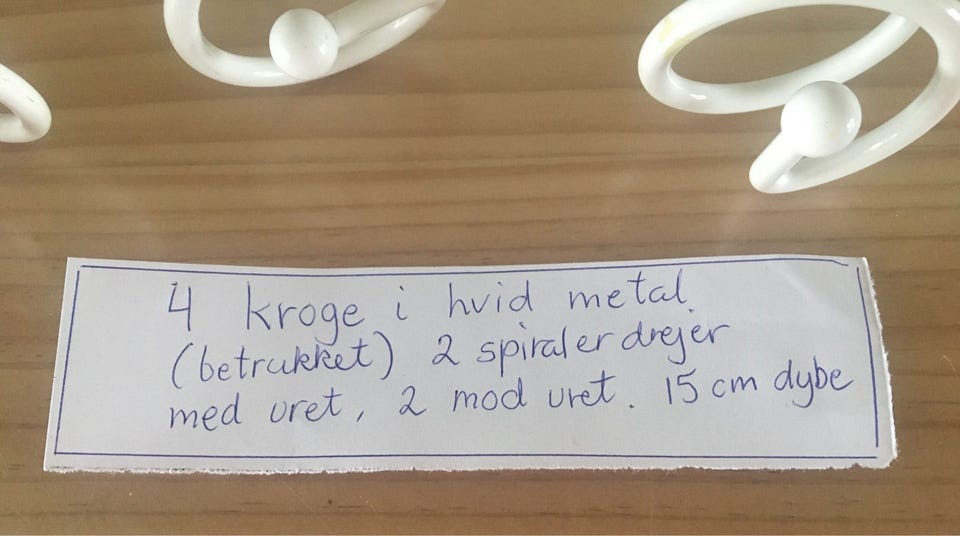 4 kroge i hvid metal.
(betrukket) 2 spiraler drejer
med uret, 2 mod uret. 15 cm dybe